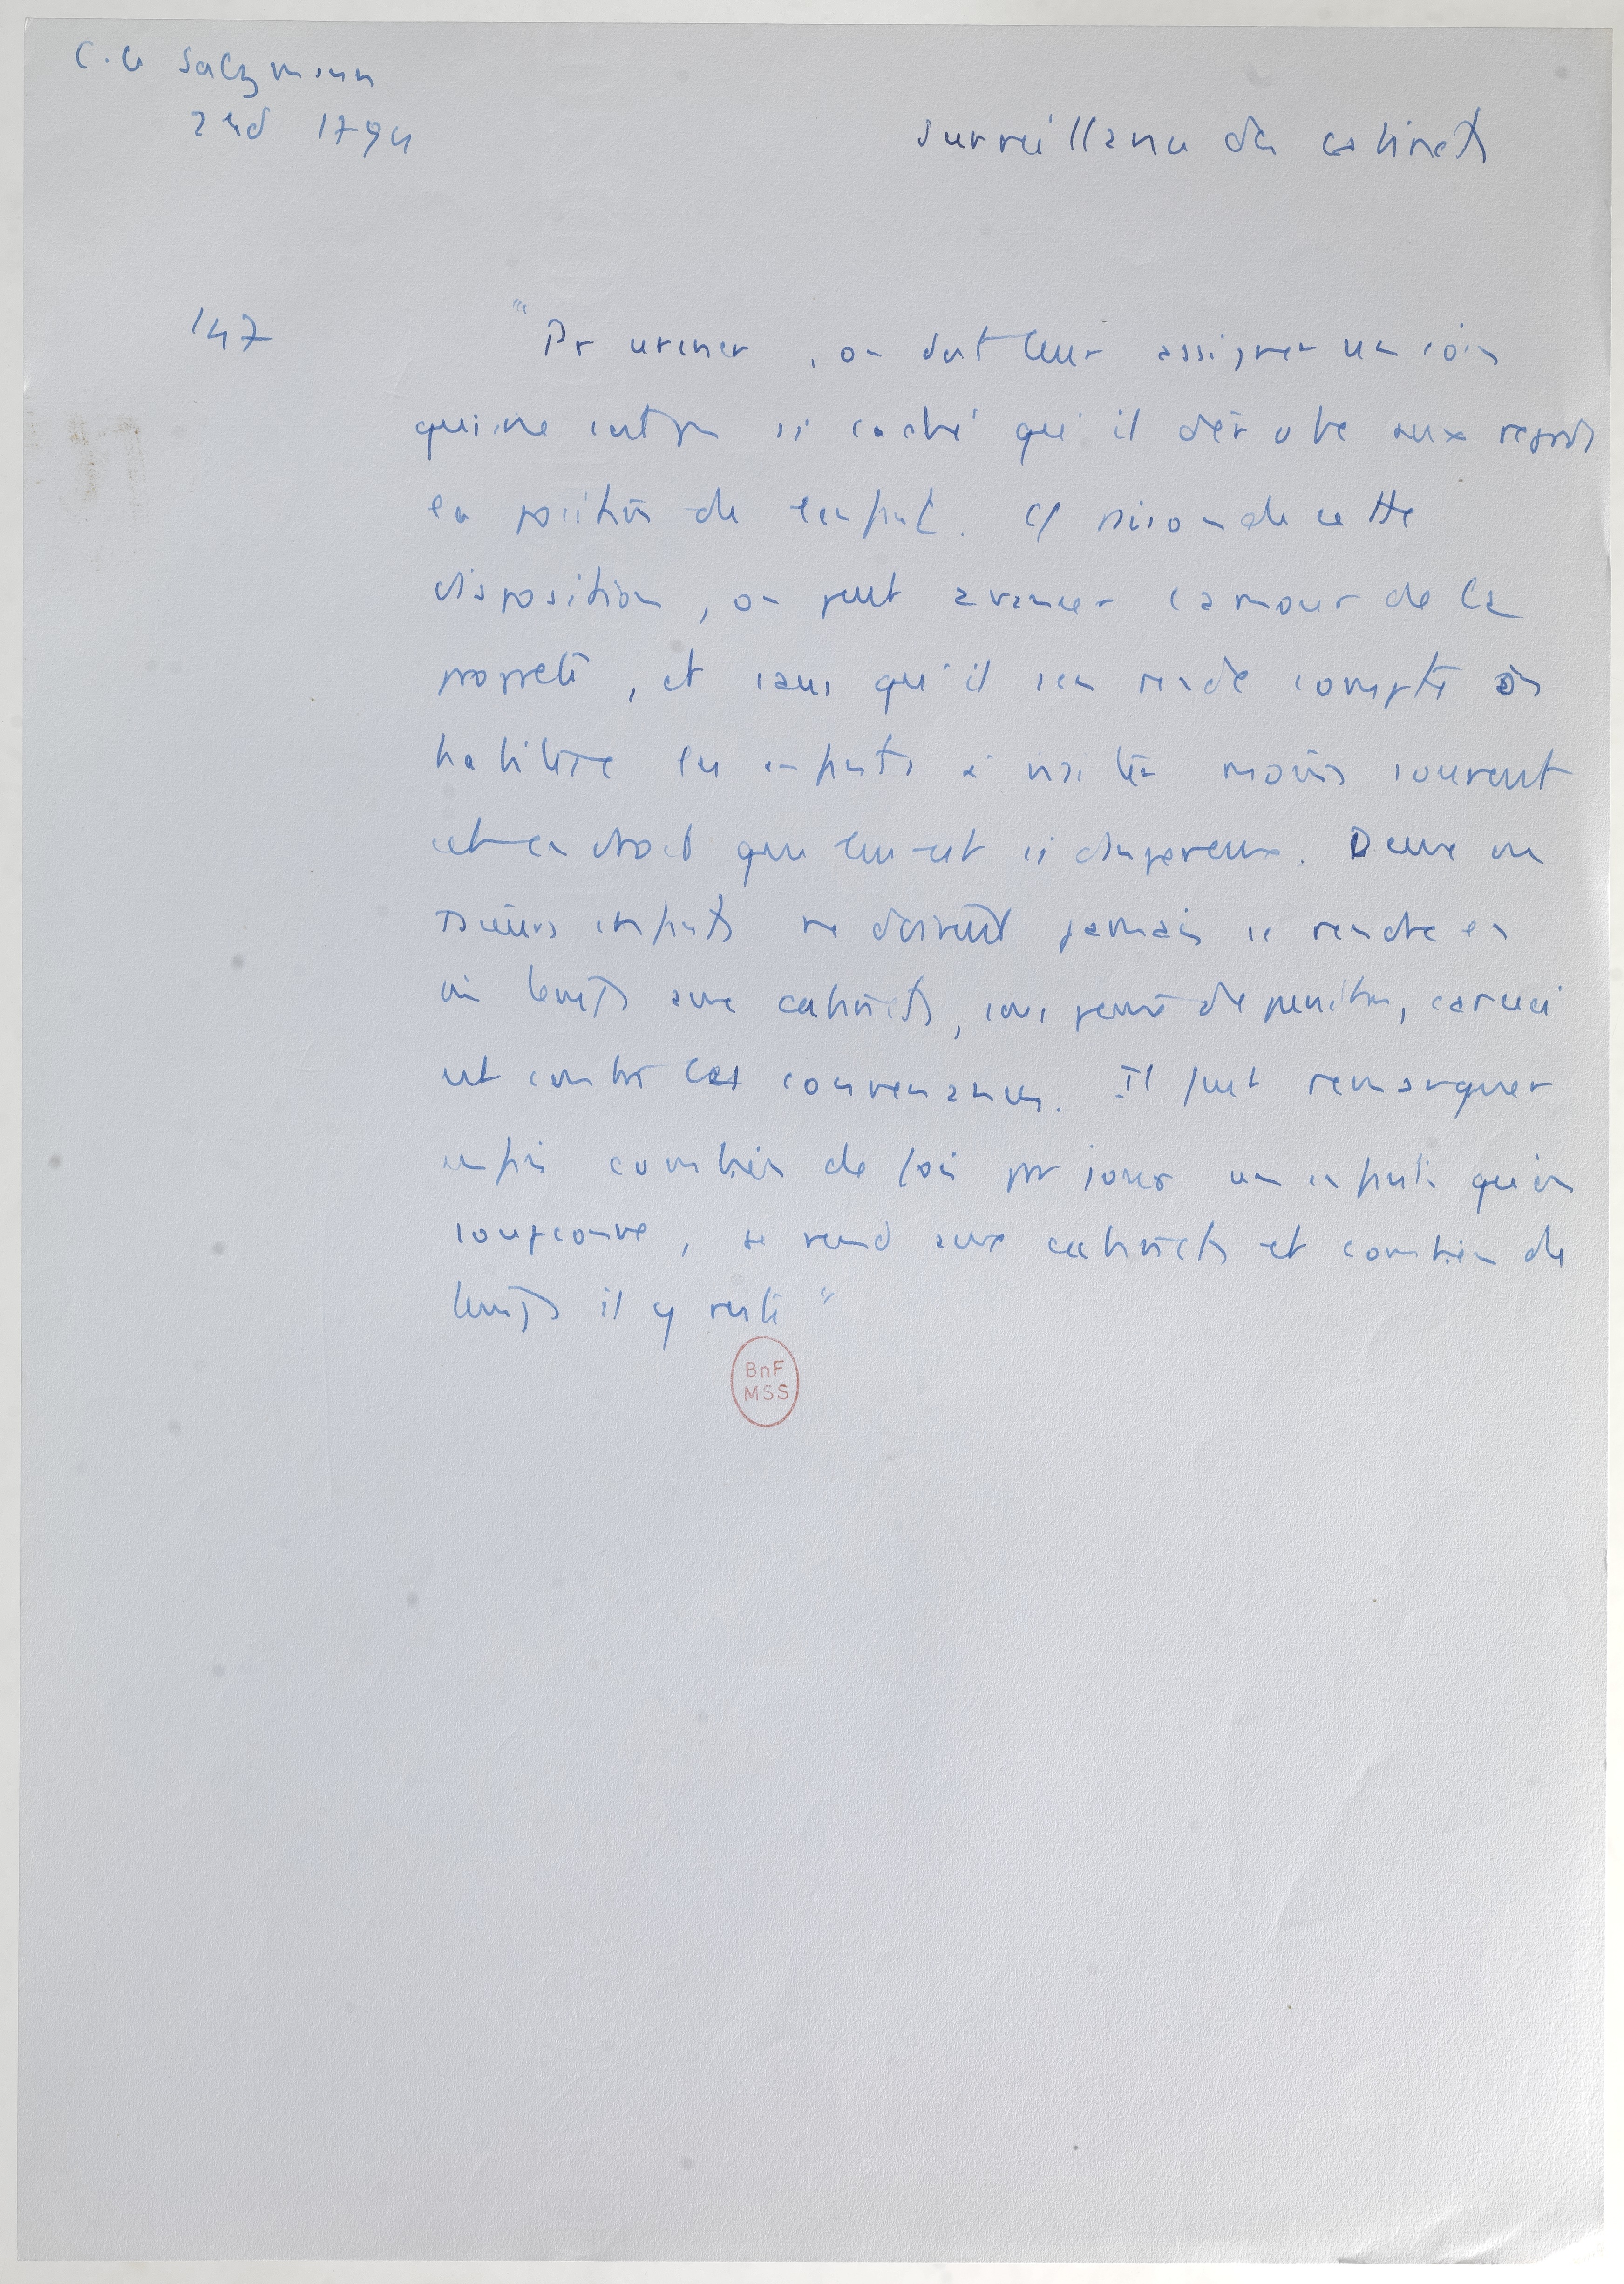 C.G Salzmann
2nd 1794
Surveillance des cabinets
147
"Pr uriner, on doit leur assigner un coin
qui ne soit pas si caché qu'il dérobe aux regards
la position de l'enfant. Et raison de cette
disposition, on peut avancer l'amour de la
propreté, et sans qu'il s'en rende compte on
habitue les enfants à visiter moins souvent
cet endroit qui leur est si dangereux. Deux ou
plusieurs enfants ne doivent jamais se rendre en
m temps aux cabinets, sous peine de punition, car ceci
est contre les convenances. Il faut remarquer
enfin combien de fois par jour un enfant qu'on
soupçonne, se rend aux cabinets et combien de
temps il y reste"
BnF
MSS